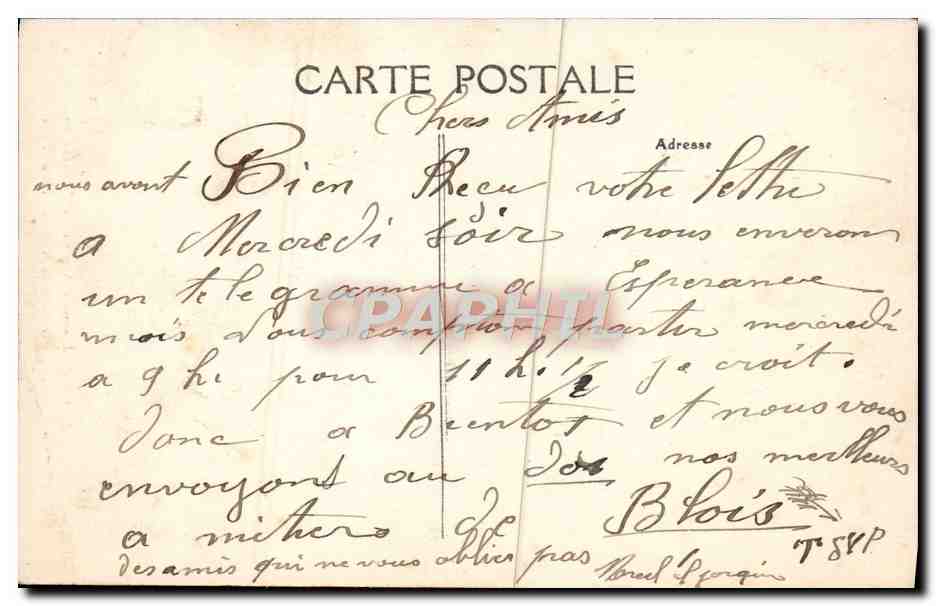 CARTE POSTALE
Chers Amis
Adresse
nous avont Bien Recu votre lettre
a Mercredi soir nous enveron
un telegramme a Esperance
mois vous compton partir mercredi
a 9 he pour 11 h. 1/2 je croit.
donc a Bientot et nous vous
envoyont au dos nos meilleurs
a mitiers de Blois
des amis qui ne vous oublier pas
CPAPHIL